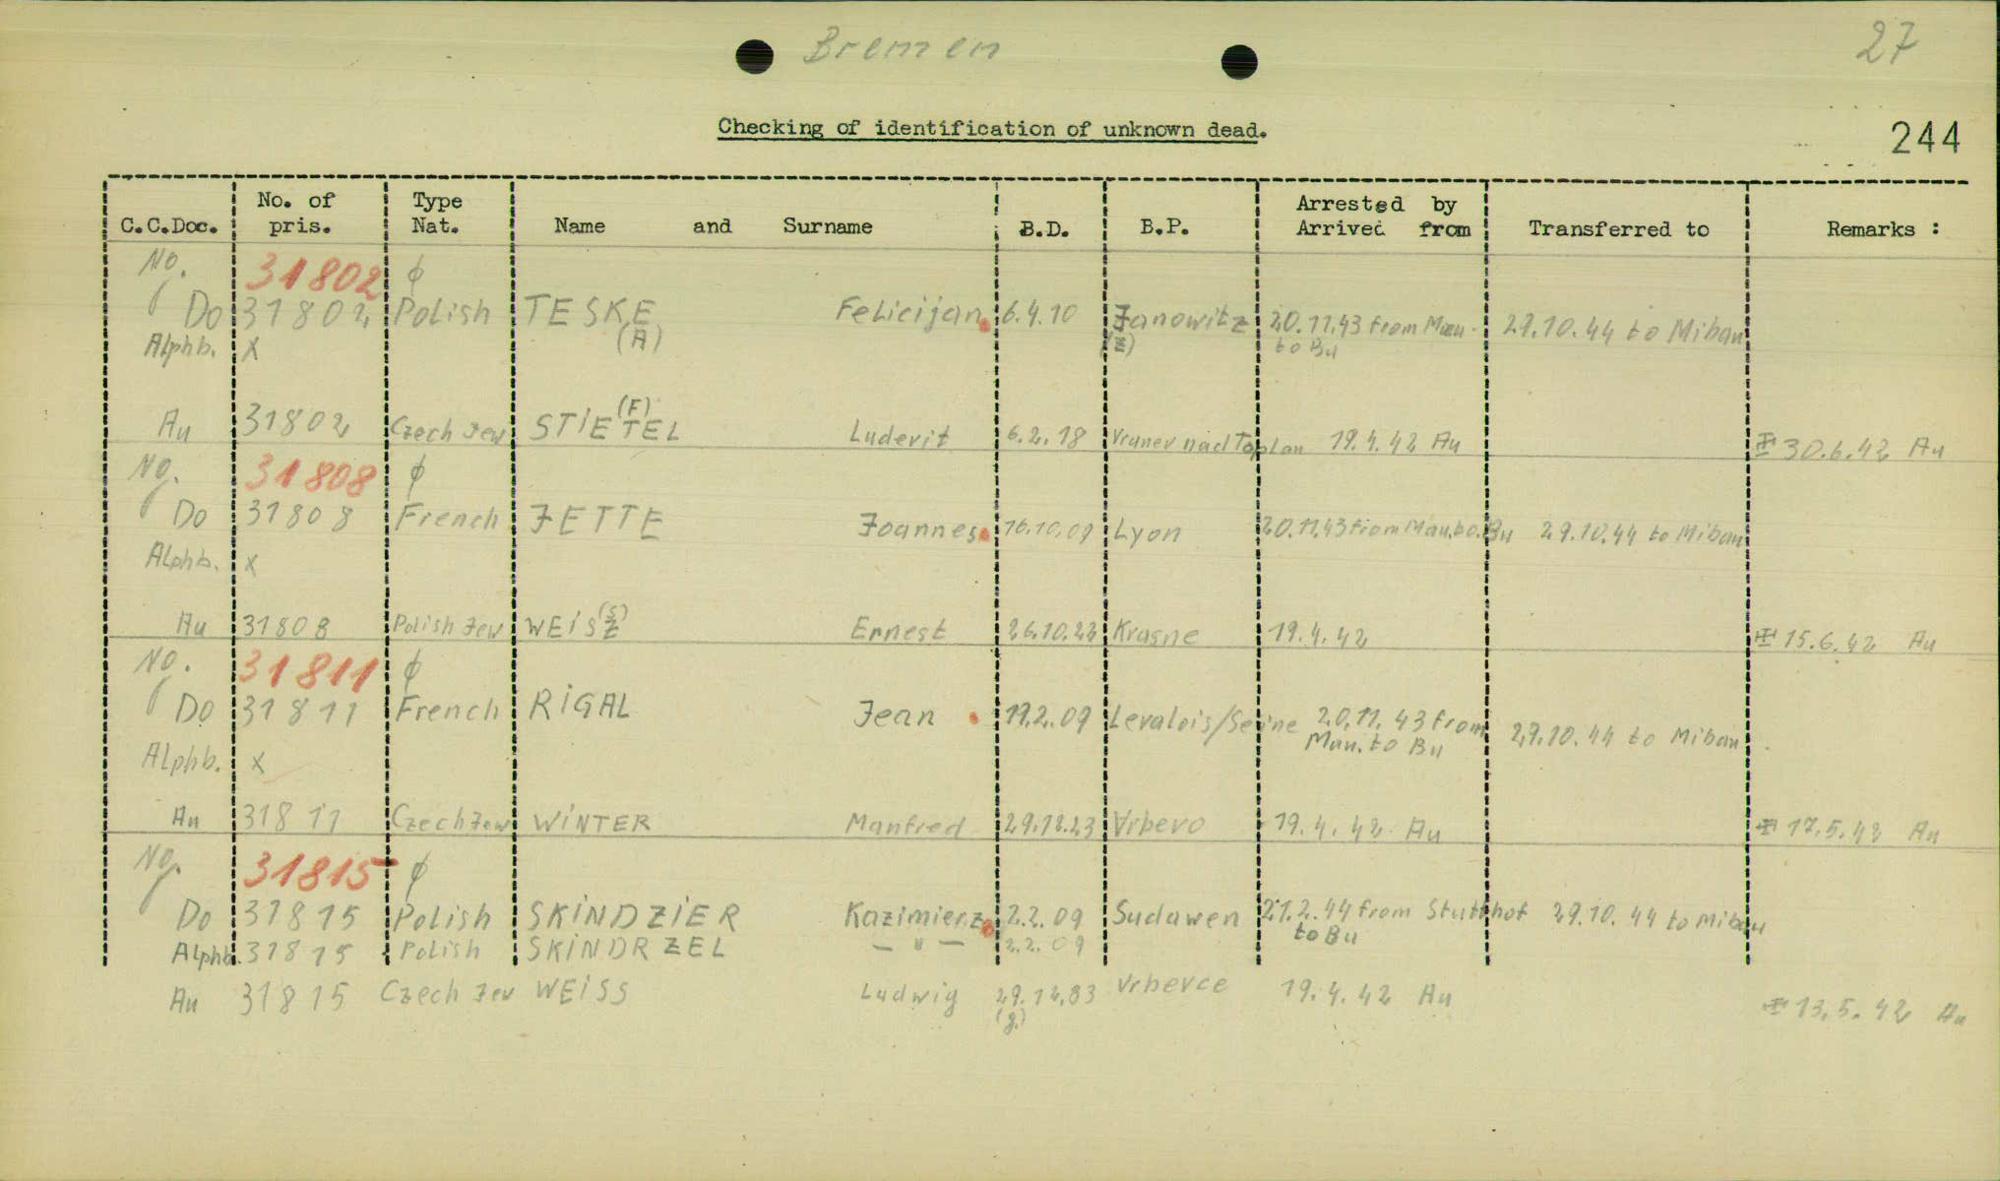 Bremen
27
Checking of identification of unknown dead.
244
C.C.Doc. No. of pris. Type Nat. Name and Surname B.D. B.P. Arrested by Arrived from Transferred to Remarks :
No. 31802 ϕ
Do 31802 Polish TESKE Felicijan 6.4.10 Janowitz 20.11.43 from Mau. 29.10.44 to Mibau
(A) to Bu
Alphb. x
(F)
Au 31802 Czech Jew STIETEL Ludevit 6.2.18 Vranev nad Toplan 19.4.42 Au 30.6.42 Au
No. 31808 ϕ
Do 31808 French JETTE Joannes 16.10.09 Lyon 20.11.43 from Mau.to.Bu 29.10.44 to Mibau
Alphb. x
(S)
Au 31808 Polish Jew WEISZ Ernest 26.10.22 Krasne 19.4.42 15.6.42 Au
No. 31811 ϕ
Do 31811 French RIGAL Jean 19.2.09 Levalois/Seine 20.11.43 from 29.10.44 to Mibau
Mau. to Bu
Alphb. x
Au 31811 Czech Jew WINTER Manfred 29.12.23 Vrbevo 19.4.42 Au 17.5.42 Au
No. 31815 ϕ
Do 31815 Polish SKINDZIER Kazimierz 2.2.09 Sudawen 21.2.44 from Stutthof 29.10.44 to Mibau
to Bu
Alphb. 31815 Polish SKINDRZEL — " — 2.2.09
Au 31815 Czech Jew WEISS Ludwig 29.12.83 Vrbevce 19.4.42 Au 13.5.42 Au